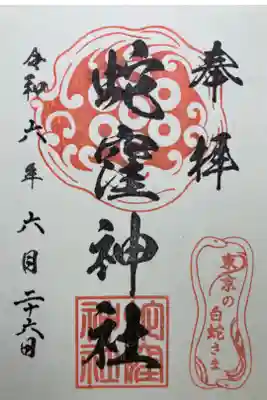 奉拝
蛇窪神社
令和六年 六月二十六日
東京の
白蛇さま
蛇窪
神社